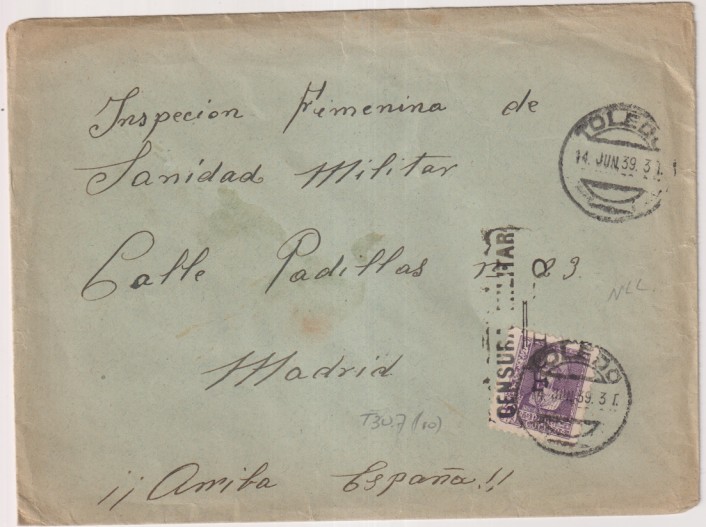 Inspecion Femenina de
Sanidad Militar
Calle Padillas nº 29.
Madrid
¡¡Arriba España!!
TOLEDO
14. JUN.39. 3 T.
CENSURA MILITAR
TOLEDO
14. JUN.39. 3 T.
NLL.